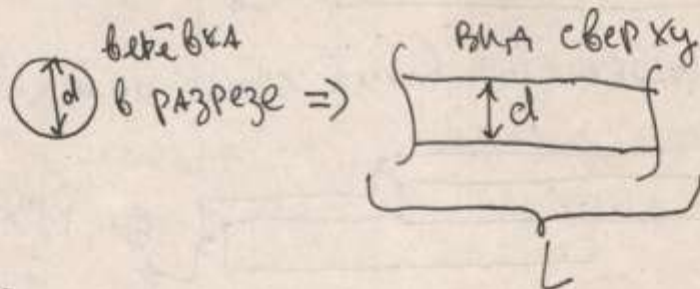 верёвка
d в разрезе =>
вид сверху
d
L